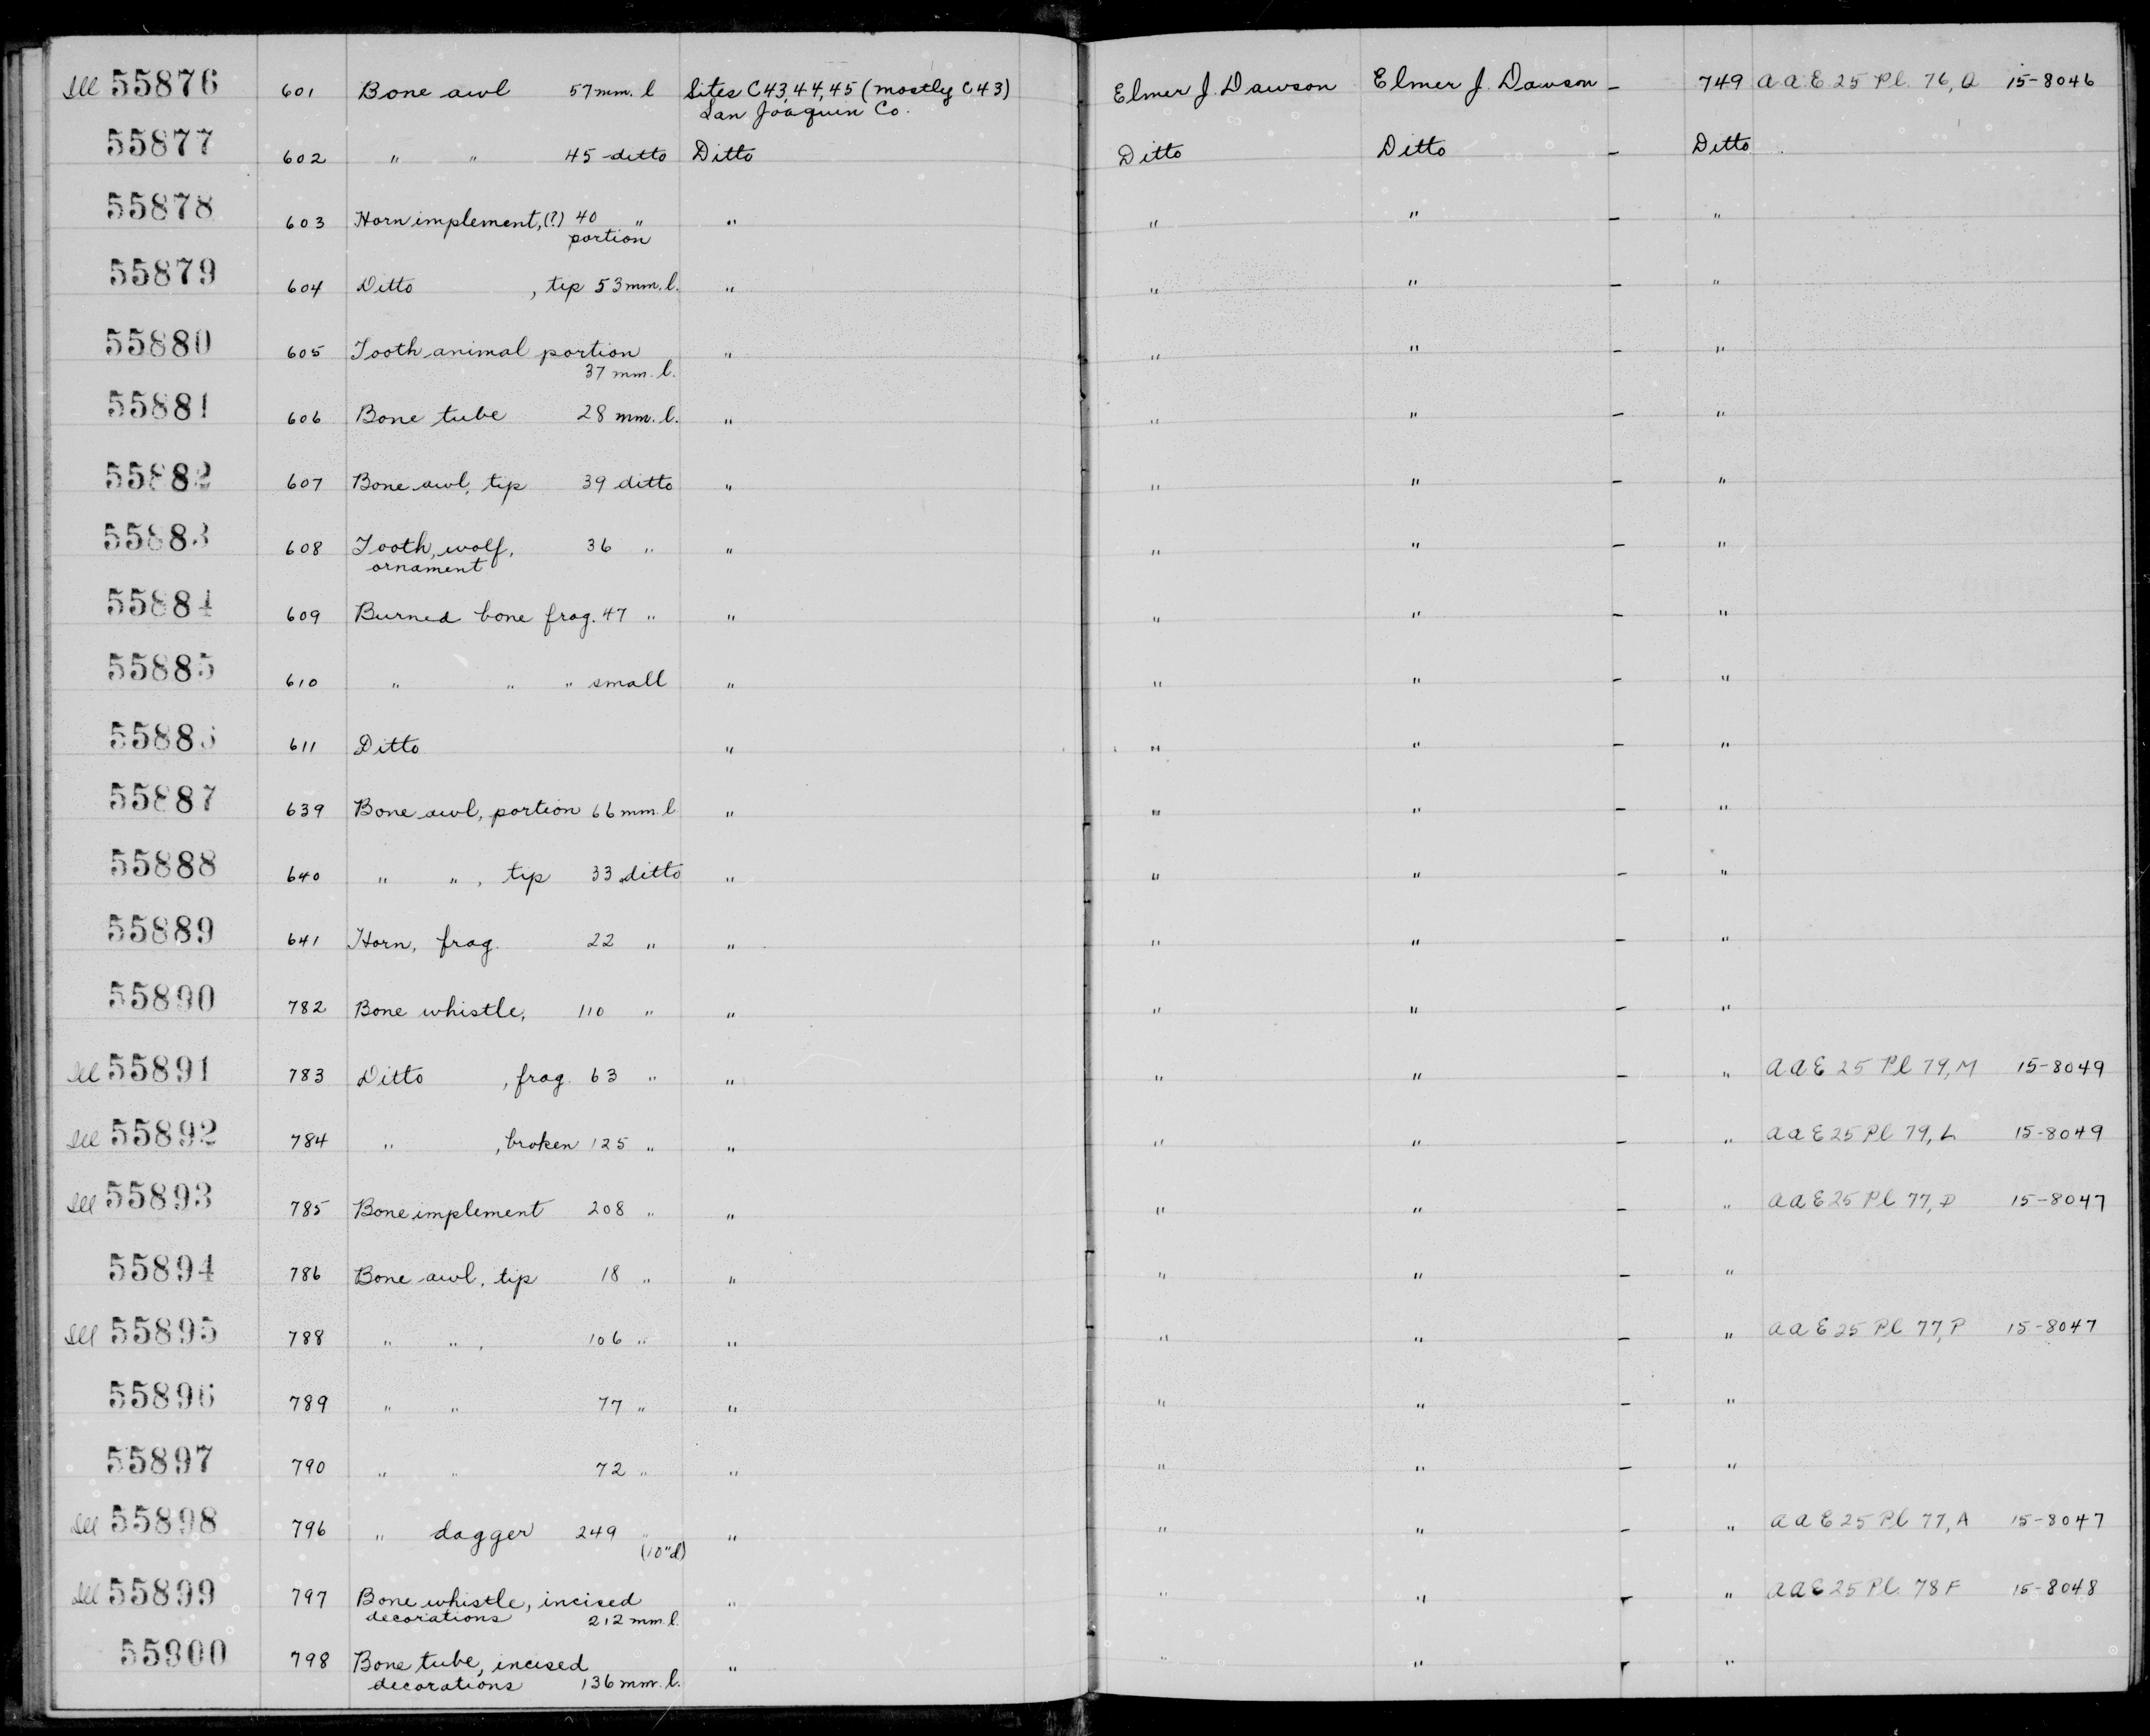 Ill 55876 601 Bone awl 57 mm. l Sites C43,44,45 (mostly C43) Elmer J. Dawson Elmer J. Dawson – 749 AAE 25 Pl. 76, Q 15-8046
San Joaquin Co.
55877 602 " " 45 ditto Ditto Ditto Ditto – Ditto
55878 603 Horn implement, (?) 40 " " " " – "
portion
55879 604 Ditto , tip 53 mm. l. " " " – "
55880 605 Tooth animal portion " " " – "
37 mm. l.
55881 606 Bone tube 28 mm. l. " " " – "
55882 607 Bone awl, tip 39 ditto " " " – "
55883 608 Tooth, wolf, 36 " " " " – "
ornament
55884 609 Burned bone frag. 47 " " " " – "
55885 610 " " " small " " " – "
55886 611 Ditto " " " – "
55887 639 Bone awl, portion 66 mm. l " " " – "
55888 640 " " , tip 33 ditto " " " – "
55889 641 Horn, frag. 22 " " " " – "
55890 782 Bone whistle, 110 " " " " – "
Ill 55891 783 Ditto , frag. 63 " " " " – " AAE 25 Pl 79, M 15-8049
Ill 55892 784 " , broken 125 " " " " – " AAE 25 Pl 79, L 15-8049
Ill 55893 785 Bone implement 208 " " " " – " AAE 25 Pl 77, D 15-8047
55894 786 Bone awl, tip 18 " " " " – "
Ill 55895 788 " " , 106 " " " " – " AAE 25 Pl 77, P 15-8047
55896 789 " " 77 " " " " – "
55897 790 " " 72 " " " " – "
Ill 55898 796 " dagger 249 " " " " – " AAE 25 Pl 77, A 15-8047
(10"d)
Ill 55899 797 Bone whistle, incised " " " – " AAE 25 Pl. 78 F 15-8048
decorations 212 mm. l.
55900 798 Bone tube, incised " " " – "
decorations 136 mm. l.